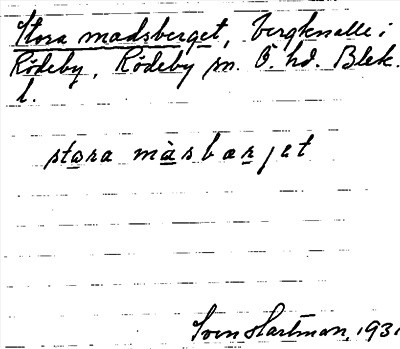 Stora madsberget, bergknalle i
Rödeby, Rödeby sn. Ö. hd. Blek.
l.
stora màsbarjet
Sven Hartman, 1931